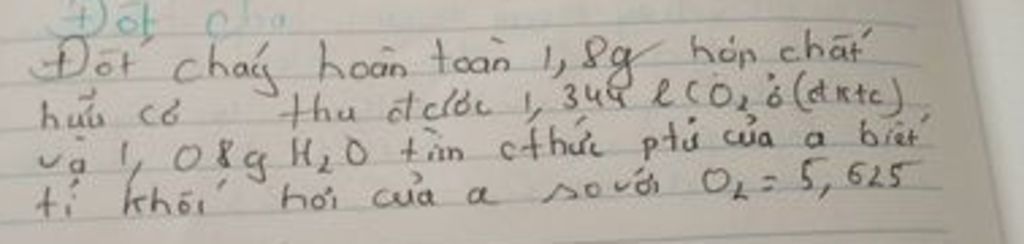 Đốt cha
Đốt cháy hoàn toàn 1,8g hợp chất
hữu cơ thu được 1,344 l CO2 ở (đktc)
và 1,08g H2O tìm cthức ptử của a biết
tỉ khối hơi của a so với O2 = 5,625